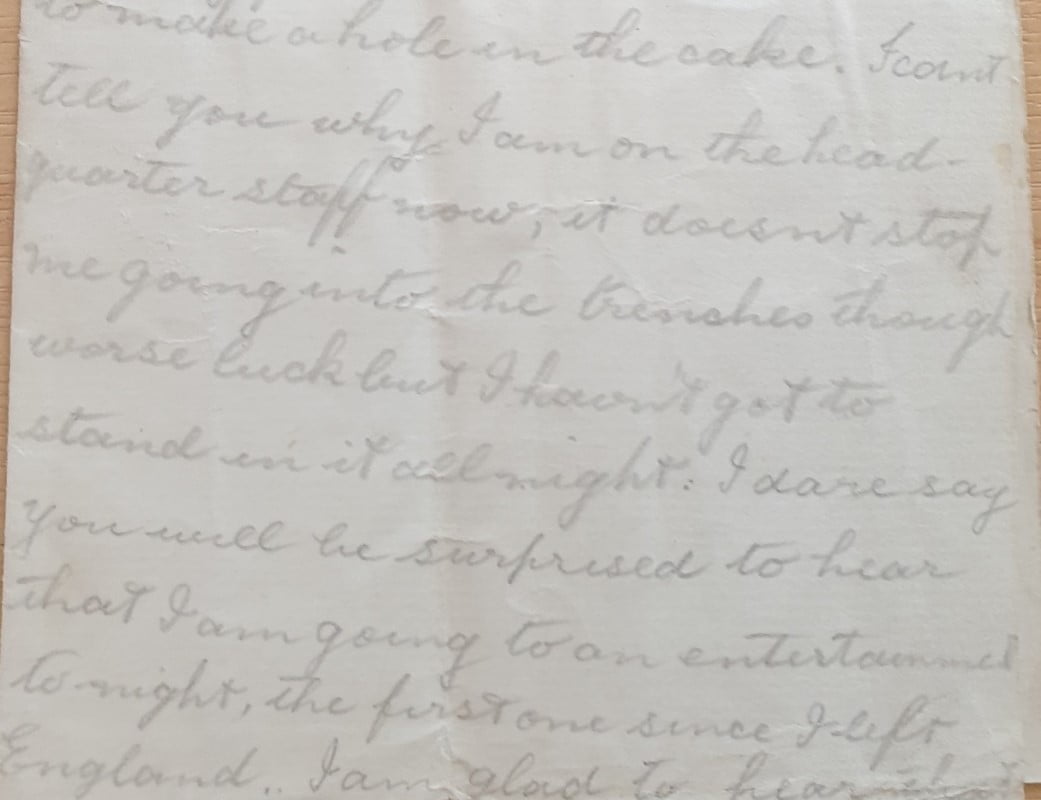 to make a hole in the cake. I cant
tell you why I am on the head-
quarter staff now, it doesnt stop
me going into the trenches though
worse luck but I havn't got to
stand in it all night. I dare say
you will be surprised to hear
that I am going to an entertainmet
to-night, the first one since I left
England.. I am glad to hear that